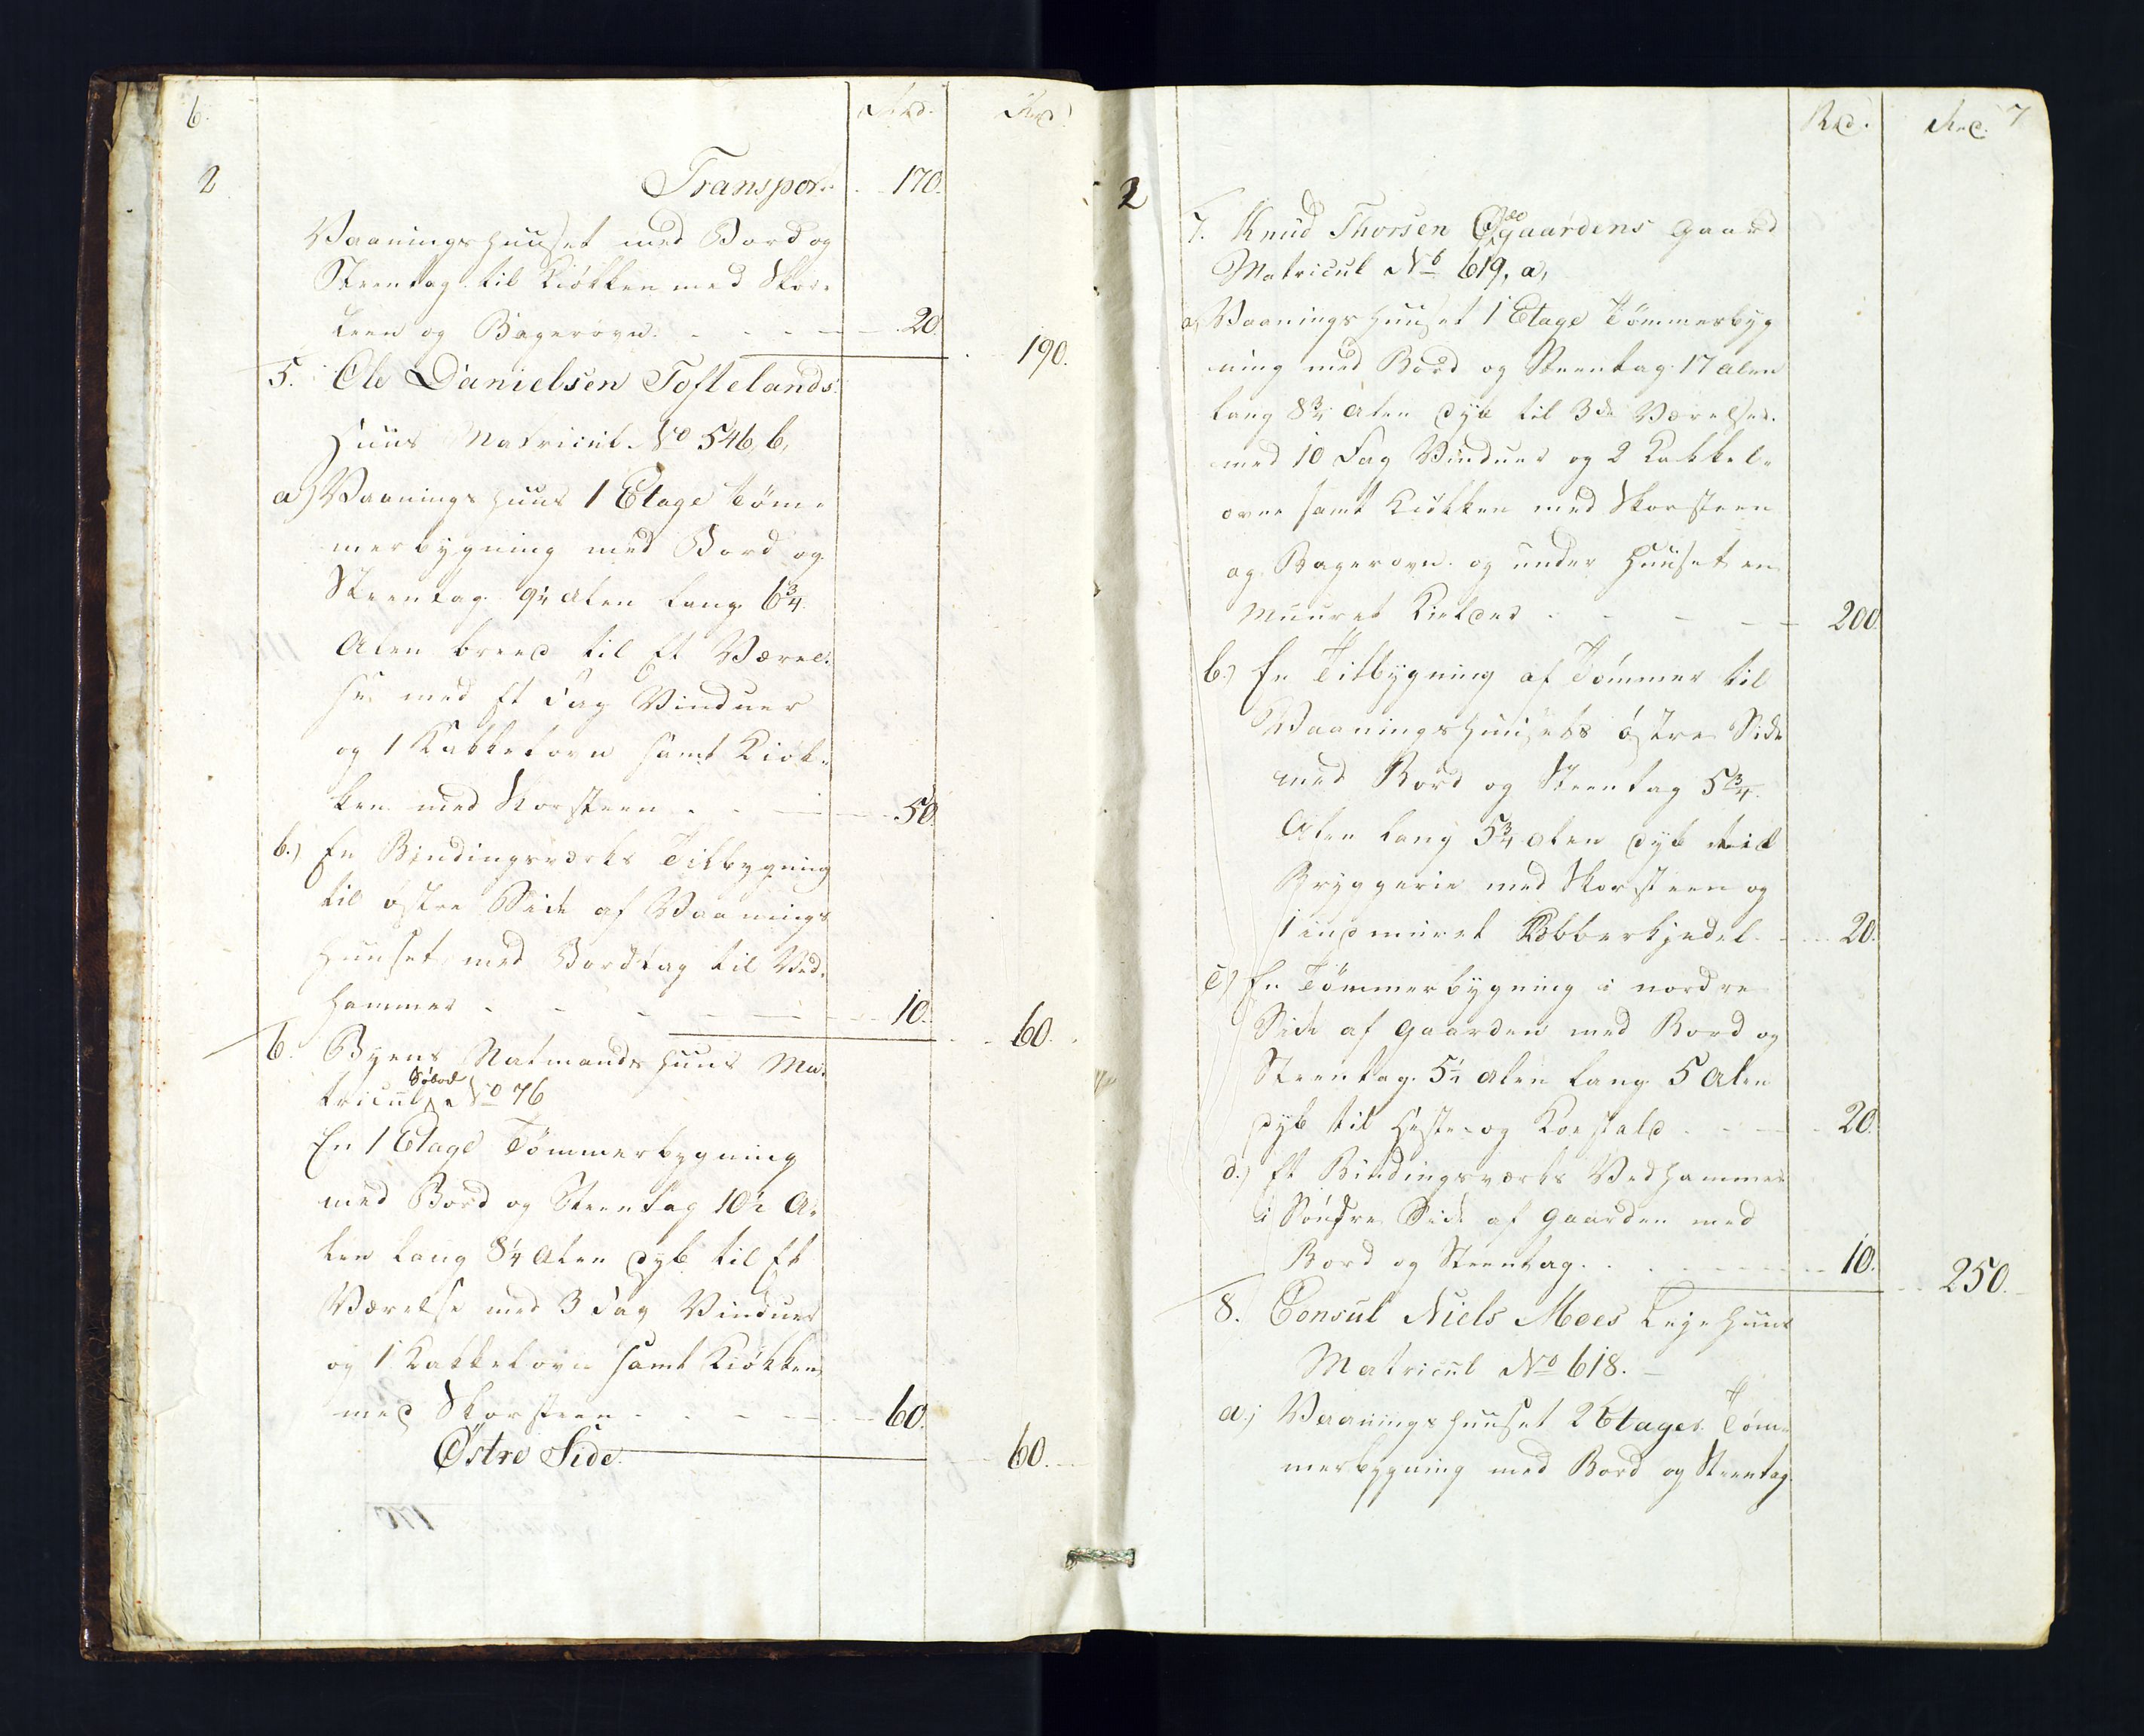 6.
Rbd. Rbd.
2
Transport 170.
Vaaningshuuset med Bord og
Steentag til Kiökken med Skor-
steen og Bagerovn. 20.
190.
5. Ole Danielsen Toftelands
Huus Matricul No 546, b,
a) Vaaningshuus 1 Etage Töm-
merbygning med Bord og
Steentag 9½ Alen lang 6¾
Alen breed til Et Værel-
se med Et Fag Vinduer
og 1 Kakkelovn samt Kiök-
ken med Skorsteen 50.
b.) En Bindingsværks Tilbygning
til östre Side af Vaanings
Huuset med Bordtag til Ved-
hammer 10.
60.
6. Byens Natmands Huus Ma-
tricul No 76
En 1 Etage Tömmerbygning
med Bord og Steentag 10½ A-
len lang 8¼ Alen dyb til Et
Værelse med 3 Fag Vinduer
og 1 Kakkelovn samt Kiökken
med Skorsteen 60.
Østre Side.
60.
Rbd. Rbd. 7
2
7. Knud Thorsen Ødegaardens Gaard
Matricul No 619, a,
a, Vaaningshuuset 1 Etage Tömmerbyg
ning med Bord og Steentag 17 Alen
lang 8¾ Alen dyb til 3de Værelser
med 10 Fag Vinduer og 2 Kakkel-
ovne samt Kiökken med Skorsteen
og Bagerovn og under Huuset en
Muuret Kielder 200.
b.) En Tilbygning af Tömmer til
Vaaningshuusets östre Side
med Bord og Steentag 5¾
Alen lang 5¾ Alen dyb til
Bryggerie med Skorsteen og
1 indmuret Kobberkjedel 20.
c) En Tömmerbygning i nordre
Side af Gaarden med Bord og
Steentag 5½ Alen lang 5 Alen
dyb til Heste og Koestald 20.
d.) Et Bindingsværks Vedhammer
i Söndre Side af Gaarden med
Bord og Steentag. 10.
250.
8. Consul Niels Moes Leje Huus
Matricul No 618.
a.) Vaaningshuuset 2 Etages Töm-
merbygning med Bord og Steentag